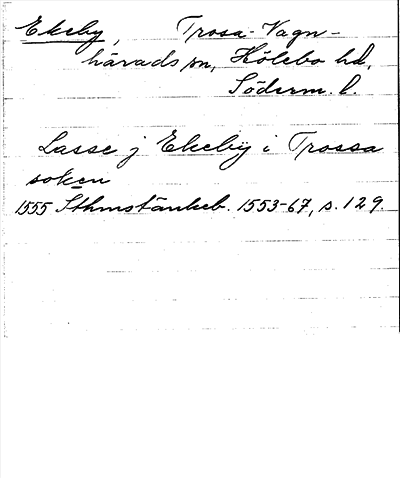 Ekeby, Trosa-Vagn-
härads sn, Hölebo hd,
Söderm. l.
Lasse j Ekeby i Trossa
soken
1555 Sthmstänkeb. 1553-67, s. 129.